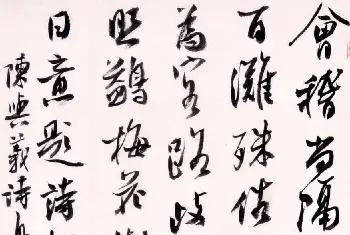 會稽尚隔
百灘殊俗
為客路歧
照鷁梅花
日意題詩
陳與義詩